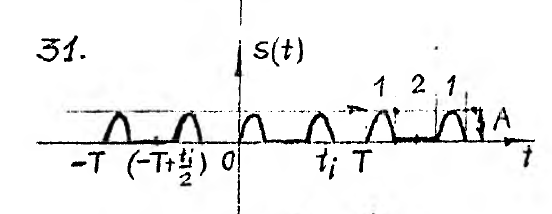 31.
S(t)
1 2 1
A
-T (-T+ti/2) 0 ti T t